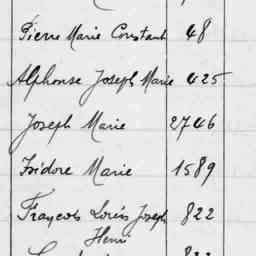 Pierre Marie Constant 48
Alphonse Joseph Marie 425
Joseph Marie 2746
Isidore Marie 1589
François Louis Joseph 822
Henri